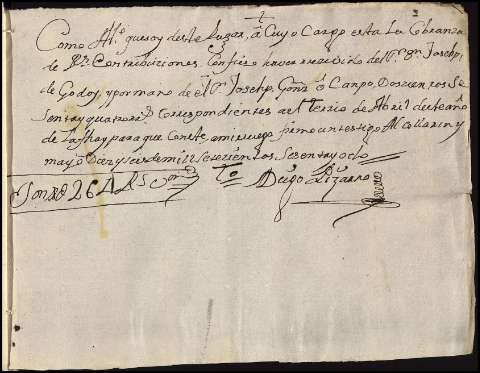 Como Alc.e que soy deste Lugar, a Cuyo Cargo esta la Cobranza
de R.s Contribuciones Confieso haver recivido del S.r D.n Joseph
de Godoy, y por mano de el S.r Joseph Gonz.z Ocanpo, Doscientos Se
senta y quatro r.s Correspondientes a el Tercio de Abril deste año
de la fha y para que Conste, a mi ruego firmo un testigo Al Collarin y
mayo Diez y seis de mill setecientos Sesenta y ocho
Son R.s 264 R.s
T.o Diego Pizarro